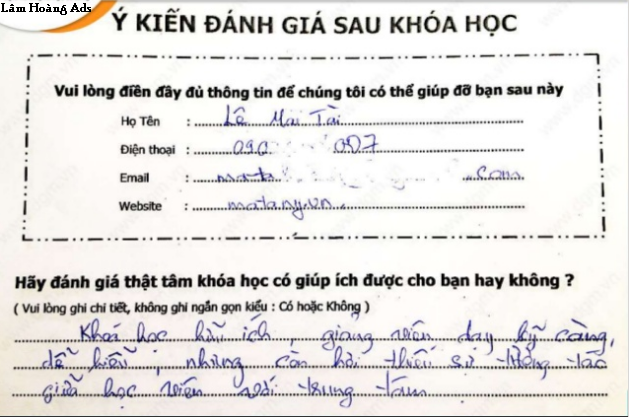 Lâm Hoàng Ads
Ý KIẾN ĐÁNH GIÁ SAU KHÓA HỌC
Vui lòng điền đầy đủ thông tin để chúng tôi có thể giúp đỡ bạn sau này
Họ Tên : Lê Mai Tài
Điện thoại : 090 007
Email : mata .com
Website : matany.vn.
Hãy đánh giá thật tâm khóa học có giúp ích được cho bạn hay không ?
( Vui lòng ghi chi tiết, không ghi ngắn gọn kiểu : Có hoặc Không )
Khoá học hữu ích, giảng viên dạy kỹ càng,
dễ hiểu, nhưng còn hơi thiếu sự tương tác
giữa học viên với trung tâm